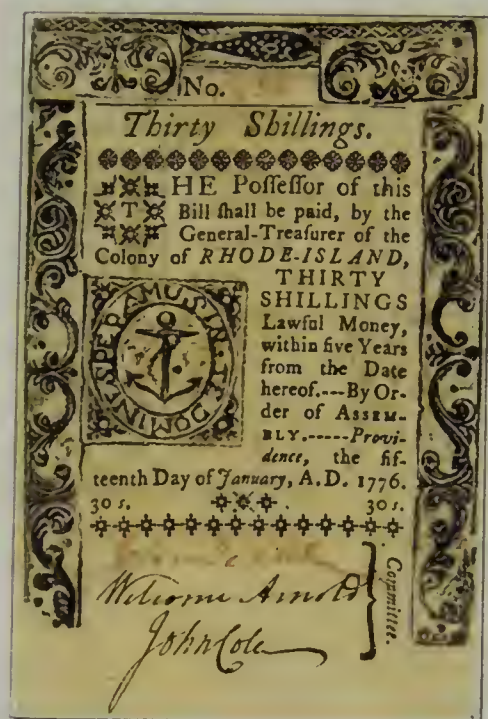 No.
Thirty Shillings.
THE Poſſeſſor of this
Bill ſhall be paid, by the
General-Treaſurer of the
Colony of RHODE-ISLAND,
THIRTY
SHILLINGS
Lawful Money,
within five Years
from the Date
hereof.---By Or-
der of ASSEM-
BLY.-----Provi-
dence, the fif-
teenth Day of January, A.D. 1776.
30 s. 30 s.
IN TE DOMINE SPERAMUS
Welcome Arnold
John Cole
Committee.